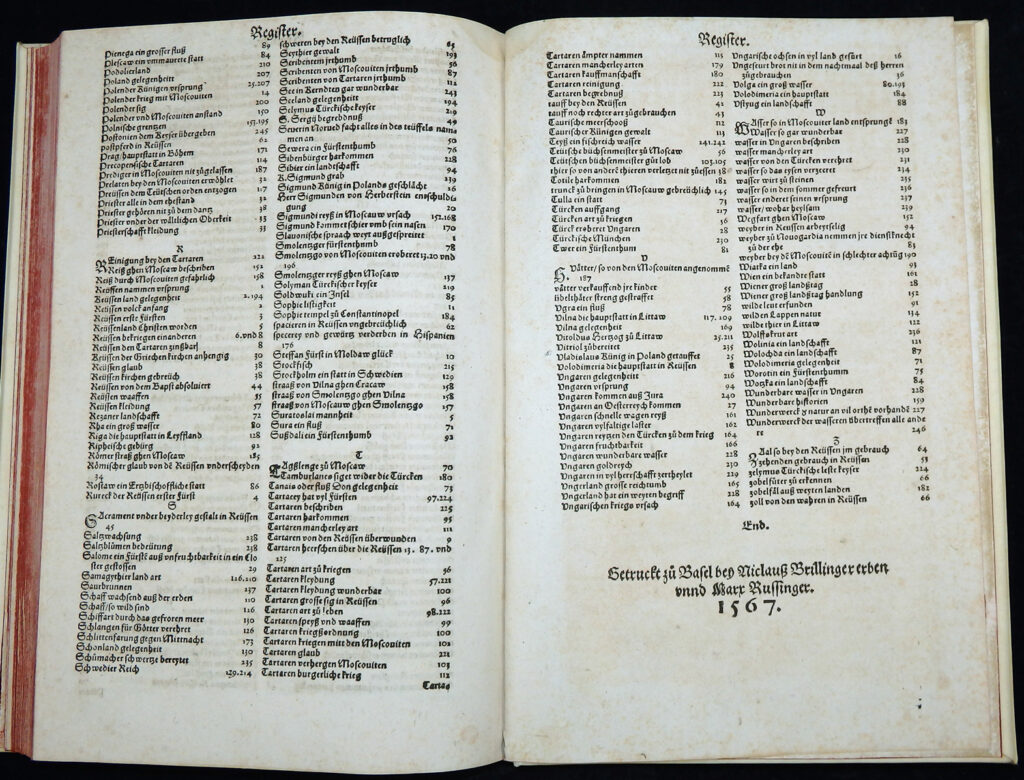 Register.
Pienega ein grosser fluß 89
Plescaw ein vmmaurete statt 84
Podolierland 210
Poland gelegenheit 207
Polender Künigen vrsprung 25.207
Polender krieg mit Moscouiten 14
Polender sig 200
Polender vnd Moscouiten anstand 150
Polnische grenzen 153.195
Postonien dem Keyser übergeben 245
postpferd in Reüssen 62
Prag hauptstatt in Böhem 171
Precopensische Tartaren 114
Prediger in Moscouiten nit zůgelassen 187
Prelaten bey den Moscouiten erwöhlt 32
Preüssen dem Teütschen orden entzogen 117
Priester alle in dem ehestand 32
Priester gehören nit zů dem dantz 38
Priester vnder der wältlichen Oberkeit 33
Priesterschafft kleidung 33
R
REinigung bey den Tartaren 222
Reiß ghen Moscaw beschriben 152
Reiß durch Moscouiten gefahrlich 158
Reüssen nammen vrsprung 1
Reüssen land gelegenheit 2.194
Reüssen volck anfang 2
Reüssen erste Fürsten 3
Reüssenland Christen worden 5
Reüssen bekriegen einanderen 6.vnd 8
Reüssen den Tartaren zinßbar 8
Reüssen der Griechen kirchen anhengig 30
Reüssen glaub 38
Reüssen kirchen gebreüch 38
Reüssen von dem Bapst absoluiert 44
Reüssen waaffen 55
Reüssen kleidung 57
Rezaner landschafft 72
Rha ein groß wasser 80
Riga die hauptstatt in Leyffland 128
Ripheische gebürg 92
Römer straß ghen Moscaw 185
Römischer glaub von dē Reüssen vnderscheyden
34
Rostaw ein Ertzbischoffliche statt 86
Rureck der Reüssen erster Fürst 4
S
SAcrament vnder beyderley gestalt in Reüssen
45
Saltzwachsung 238
Saltzblůmen bedeütung 238
Salome ein Fürstē auß vnfruchtbarkeit in ein Clo
ster gestossen 29
Samagythier land art 116.210
Saurbrunnen 237
Schaff wachsend auß der erden 110
Schaff/so wild sind 126
Schiffart durch das gefroren meer 130
Schlangen für Götter verehrt 126
Schlittenfarung gegen Mittnacht 173
Schonland gelegenheit 130
Schůmacher schwertze bereytet 235
Schwedier Reich 129.214
schweren bey den Reüssen betruglich 63
Scythier gewalt 193
Scribenten jrthumb 56
Scribenten von Moscouiten jrthumb 87
Scribenten von Tartaren jrthumb 112
See in Kerndten gar wunderbar 243
Seeland gelegenheit 194
Selymus Türckische keyser 219
S. Sergij begrebdnuß 49
Seuerin Norued facht alles in des teüffels nama
men an
Sewera ein Fürstenthumb 76
Sibenbürger harkommen 228
Sibier ein landschafft 94
K. Sigmund grab 239
Sigmund König in Polands geschlächt 26
Herr Sigmunden von Herberstein entschuldi
gung 20
Sigmundi reyß in Moscaw vrsach 152.168
Sigmund kommet schier vmb sein nasen 170
Slauonische spraach weyt außgespreitet 1
Smolentzger fürstenthumb 78
Smolentzgo von Moscouiten eroberet 13.20 vnd
196
Smolentzger reyß ghen Moscaw 137
Solyman Türckischer keyser 219
Soldwuki ein Insel 85
Sophie listigkeit 11
Sophie tempel zů Constantinopel 184
spacieren in Reüssen vngebreüchlich 62
specerey vnd gewürtz verderben in Hispanien
176
Steffan Fürst in Moldaw glück 10
Stockfisch 215
Stockholm ein statt in Schwedien 129
straaß von Vilna ghen Cracaw 158
straaß von Smolentzgo ghen Vilna 158
straaß von Moscauw ghen Smolentzgo 157
Suratoslai mannheit 5
Sura ein fluß 71
Sußdali ein Fürstenthumb 92
T
TAgßlenge zů Moscaw 70
Tamburlanes siget wider die Türcken 180
Tanais oder fluß Don gelegenheit 73
Tartarey hat vyl Fürsten 97.224
Tartaren beschriben 225
Tartaren harkommen 95
Tartaren mancherley art 111
Tartaren von den Reüssen überwunden 9
Tartaren herrschen über die Reüssen 13. 87. vnd
125
Tartaren art zů kriegen 56
Tartaren kleydung 57.221
Tartaren kleydung wunderbar 100
Tartaren grosse sig in Reüssen 96
Tartaren art zů leben 98.222
Tartaren speyß vnd waaffen 99
Tartaren kriegßordnung 100
Tartaren kriegen mit den Moscouiten 102
Tartaren glaub 221
Tartaren verhergen Moscouiten 103
Tartaren burgerliche krieg 112
Tartaa
Register.
Tartaren ämpter nammen 113
Tartaren mancherley arten 179
Tartaren kauffmanschafft 180
Tartaren reinigung 222
Tartaren begrebnuß 223
tauff bey den Reüssen 41
tauff noch rechter art zůgebrauchen 43
Taurischer meerschooß 112
Taurischer Künigen gewalt 113
Teyß ein fischreich wasser 241.242
Teütschen büchsenmeister zů Moscaw 56
Teütschen büchsenmeister gůt lob 103.105
thier so von andere thieren verletzt nit züessen 38
Totile harkommen 182
trunck zů bringen in Moscaw gebreüchlich 145
Tulla ein statt 73
Türcken auffgang 217
Türcken art zů kriegen 56
Türck eroberet Ungaren 28
Türckische München 230
Twer ein Fürstenthum 81
V
VAtter/ so von den Moscouiten angenommē
187
vätter verkauffend jre kinder 55
übelthäter streng gestraffet 58
Ugra ein fluß 78
Vilna die hauptstatt in Littaw 117. 209
Vilna gelegenheit 169
Vitoldus Hertzog zů Littaw 25.211
Vitriol zůbereitet 235
Vladislaus Künig in Poland getauffet 25
Volodimeria die hauptstatt in Reüssen 8
Ungaren gelegenheit 216
Ungaren vrsprung 94
Ungaren kommen auß Jura 240
Ungaren an Oesterreych kommen 27
Ungaren schnelle wagen reyß 161
Ungaren vylfaltige laster 162
Ungaren reytzen den Türcken zů dem krieg 164
Ungaren fruchtbarkeit 166
Ungaren wunderbare wasser 228
Ungaren goldreych 230
Ungaren in vyl herrschafft zertheylet 229
Ungerland grosse reichthumb 165
Ungerland hat ein weyten begriff 228
Ungarischen kriegs vrsach 164
Ungarische ochsen in vyl land gefürt 16
Ungeseurt brot nit in dem nachtmaal deß herren
zůgebrauchen 36
Volga ein groß wasser 80.193
Volodimeria ein hauptstatt 184
Vstyug ein landschafft 88
W
WAsser so in Moscouiter land entsprungē 183
Wasser so gar wunderbar 227
wasser in Ungaren beschriben 228
wasser mancherley art 230
wasser von den Türcken verehrt 231
wasser so das eysen verzeret 234
wasser wirt zů steinen 235
wasser so in dem sommer gefreurt 236
wasser enderet seinen vrsprung 237
wasser/ wohar deysam 239
Wegfart ghen Moscaw 152
weyber in Reussen arbeytselig 94
weyber zů Nouogardia nemmen jre dienstknecht
zů der ehe 83
weyber bey dē Moscouitē in schlechter achtūg 190
Wiatka ein land 93
Wien ein bekandte statt 161
Wiener groß landßtag 28
Wiener groß landßtag handlung 152
wilde leut erfunden 91
wilden Lappen natur 134
wilde thier in Littaw 122
Wolffskrut art 236
Wolinia ein landschafft 121
Wolochda ein landschafft 87
Wolodimeria gelegenheit 71
Worotin ein Fürstenthumm 75
Wotzka ein landschafft 84
Wunderbare wasser in Ungaren 228
Wunderbare historien 159
Wunderwerck d natur an vil orthē vorhandē 227
Wunderwerck der wasseren übertreffen alle ande
re 246
Z
ZAal so bey den Reüssen im gebrauch 64
Zehenden gebrauch in Reüssen 51
zelymus Türckische leste keyser 224
zobel füter zů erkennen 66
zobelfäl auß weyten landen 182
zoll von den wahren in Reüssen 66
End.
Getruckt zů Basel bey Niclauß Brillinger erben
vnnd Marx Russinger.
1567.